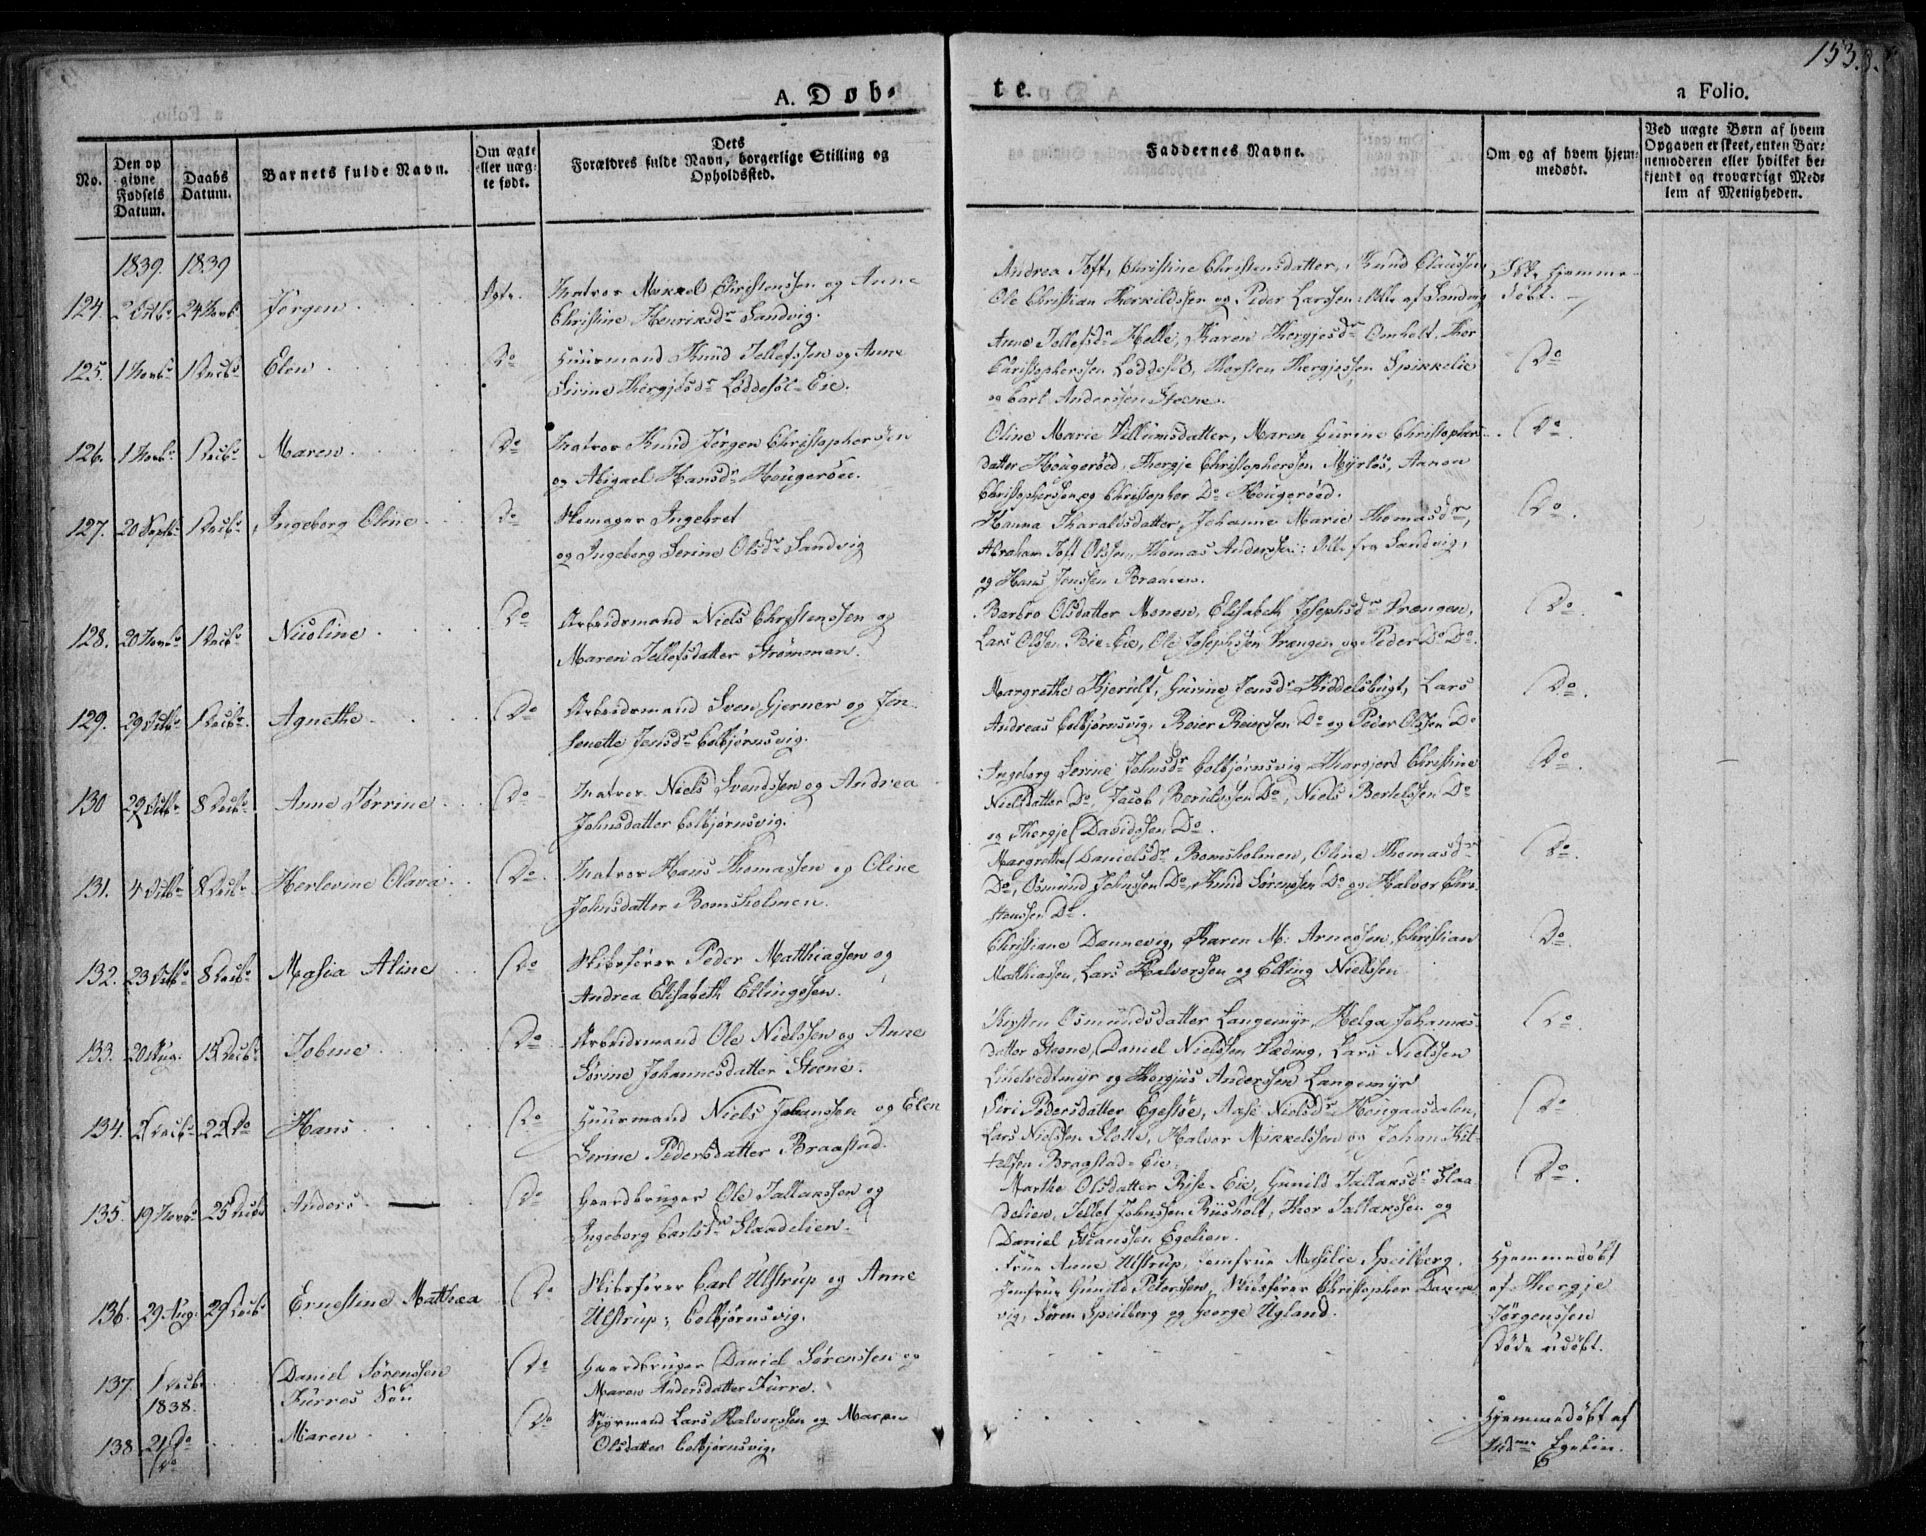 153.
A. Døb-
te.
a Folio.
No.
Den op
givne
Fødsels
Datum.
Daabs
Datum.
Barnets fulde Navn.
Om ægte
eller uæg-
te født.
Dets
Forældres fulde Navn, borgerlige Stilling og
Opholdssted.
Faddernes Navne.
Om og af hvem hjem-
medøbt.
Ved uægte Børn af hvem
Opgaven er skeet, enten Bar-
nemoderen eller hvilket be-
kjendt og troværdigt Med-
lem af Menigheden.
1839. 1839
124. 2 Octbr 24 Novb. Jørgen Ægte. Matros Mikael Christenssen og Anne
Christine Henriksdr Sandvig.
Andrea Toft, Christine Christensdatter, Knud Claussen
Ole Christian Therkildssen og Peder Larssen: Alle af Sandvig
Ikke hjemme-
døbt.
125. 1 Novbr 1 Decbr Elen Do Huurmand Knud Tellefssen og Anne
Sirine Thergjesdr Løddesøl-Eie.
Anne Tellefsdr Helle, Karen Thergjesdr Omholt, Thor
Christopherssen Løddesøl, Thorsten Thergjessen Spikkelie
og Carl Anderssen Steene.
Do
126. 1 Novbr 1 Decbr Maren Do Matros Knud Jørgen Christopherssen
og Abigael Hansdr Hougerøen.
Oline Marie Villumsdatter, Maren Gurine Christophers-
datter Hougerøed, Thergje Christopherssen Myrløs, Aanon
Christopherssen og Christopher Do Hougerøed.
Do
127. 20 Septbr 1 Decbr Ingeborg Oline Do Skomager Ingebret
og Ingeborg Serine Olsdr Sandvig
Hanna Tharaldsdatter, Johanne Marie Thomasdr,
Abraham Toft Olssen, Thomas Anderssen: Alle fra Sandvig,
og Hans Jenssen Braaten.
Do
128. 20 Novbr 1 Decbr Nicoline Do Arbeidsmand Niels Christenssen og
Maren Tellefsdatter Strømmen.
Barbro Olsdatter Monen, Elisabeth Josephsdr Vrængen,
Lars Olssen Bie-Eie, Ole Josephssen Vrængen og Peder Do Do
Do
129. 29 Octbr 1 Decbr Agnethe Do Arbeidsmand Sven Gjerner og Jen-
senette Jensdr Colbjørnsvig.
Margrethe Kjerulf, Gurine Jensdr Kiddelsbugt, Lars
Andreas Colbjørnsvig, Reier Reierssen Do og Peder Olssen Do
Do
130 29 Octbr 8 Decbr Anne Tørrine Do Matros Niels Svendssen og Andrea
Johnsdatter Colbjørnsvig.
Ingeborg Serine Johnsdr Colbjørnsvig, Thargjerd Christine
Nielsdatter Do, Jacob Berulssen Do, Niels Bertelssen Do
og Thergje Davidssen Do.
Do
131. 4 Octbr 8 Decbr Herlevine Olava Do Matros Hans Thomassen og Oline
Johnsdatter Bomsholmen.
Margrethe Danielsdr Bomsholmen, Oline Thomasdr
Do, Osmund Johnssen Do, Knud Sørenssen Do og Halvor Chri-
stenssen Do.
Do
132. 23 Octbr 8 Decbr Masia Aline Do Skibsfører Peder Matthiassen og
Andrea Elisabeth Ellingssen.
Christiane Dannevig, Karen M. Arnessen, Christian
Matthiassen, Lars Halvorssen og Elling Nielssen
Do
133. 20 Aug. 15 Decbr Tobine Do Arbeidsmand Ole Nielssen og Anne
Sørine Johannesdatter Steene.
Kirsten Osmundsdatter Langemyr, Helga Johannes-
datter Steene, Daniel Nielssen Næding, Lars Nielssen
Lindtvedtmyr og Thergjus Anderssen Langemyr
Do
134. 2 Decbr 22 Do Hans Do Huurmand Niels Johanssen og Elen
Serine Pedersdatter Braastad.
Siri Pedersdatter Egestøe, Aase Nielsdr Hougaasdalen,
Lars Nielssen Slotte, Halvor Mikkelssen og Johan Kit-
telsen Bragstad-Eie.
Do
135. 19 Novbr 25 Decbr Anders Do Gaardbruger Ole Tallakssen og
Ingeborg Carlsdr Slaadelien.
Marthe Olsdatter Rise-Eie, Gunild Tallaksdr Slaa
delien, Tellef Johnssen Riisholt, Thor Tallakssen og
Daniel Steanssen Egelien.
Do
136. 29 Aug. 29 Decbr Ernestine Matthea Do Skibsfører Carl Ulstrup og Anne
Ulstrup, Colbjørnsvig.
Frue Anne Ulstrup, Jomfrue Masilie Speilberg,
Jomfrue Gunild Peterssen, Skibsfører Christopher Danne
vig, Søren Speilberg og George Ugland.
Hjemmedøbt
af Thergje
Jørgenssen
137. 1 Decbr Daniel Sørenssen
Furres Søn
Do Gaardbruger Daniel Sørenssen og
Maren Andersdatter Furre.
Døde udøbt.
1838.
138 21 Do
Do
Maren Do Styrmand Lars Halvorssen og Maren
Olsdatter Colbjørnsvig.
Hjemmedøbt af
Egelin.